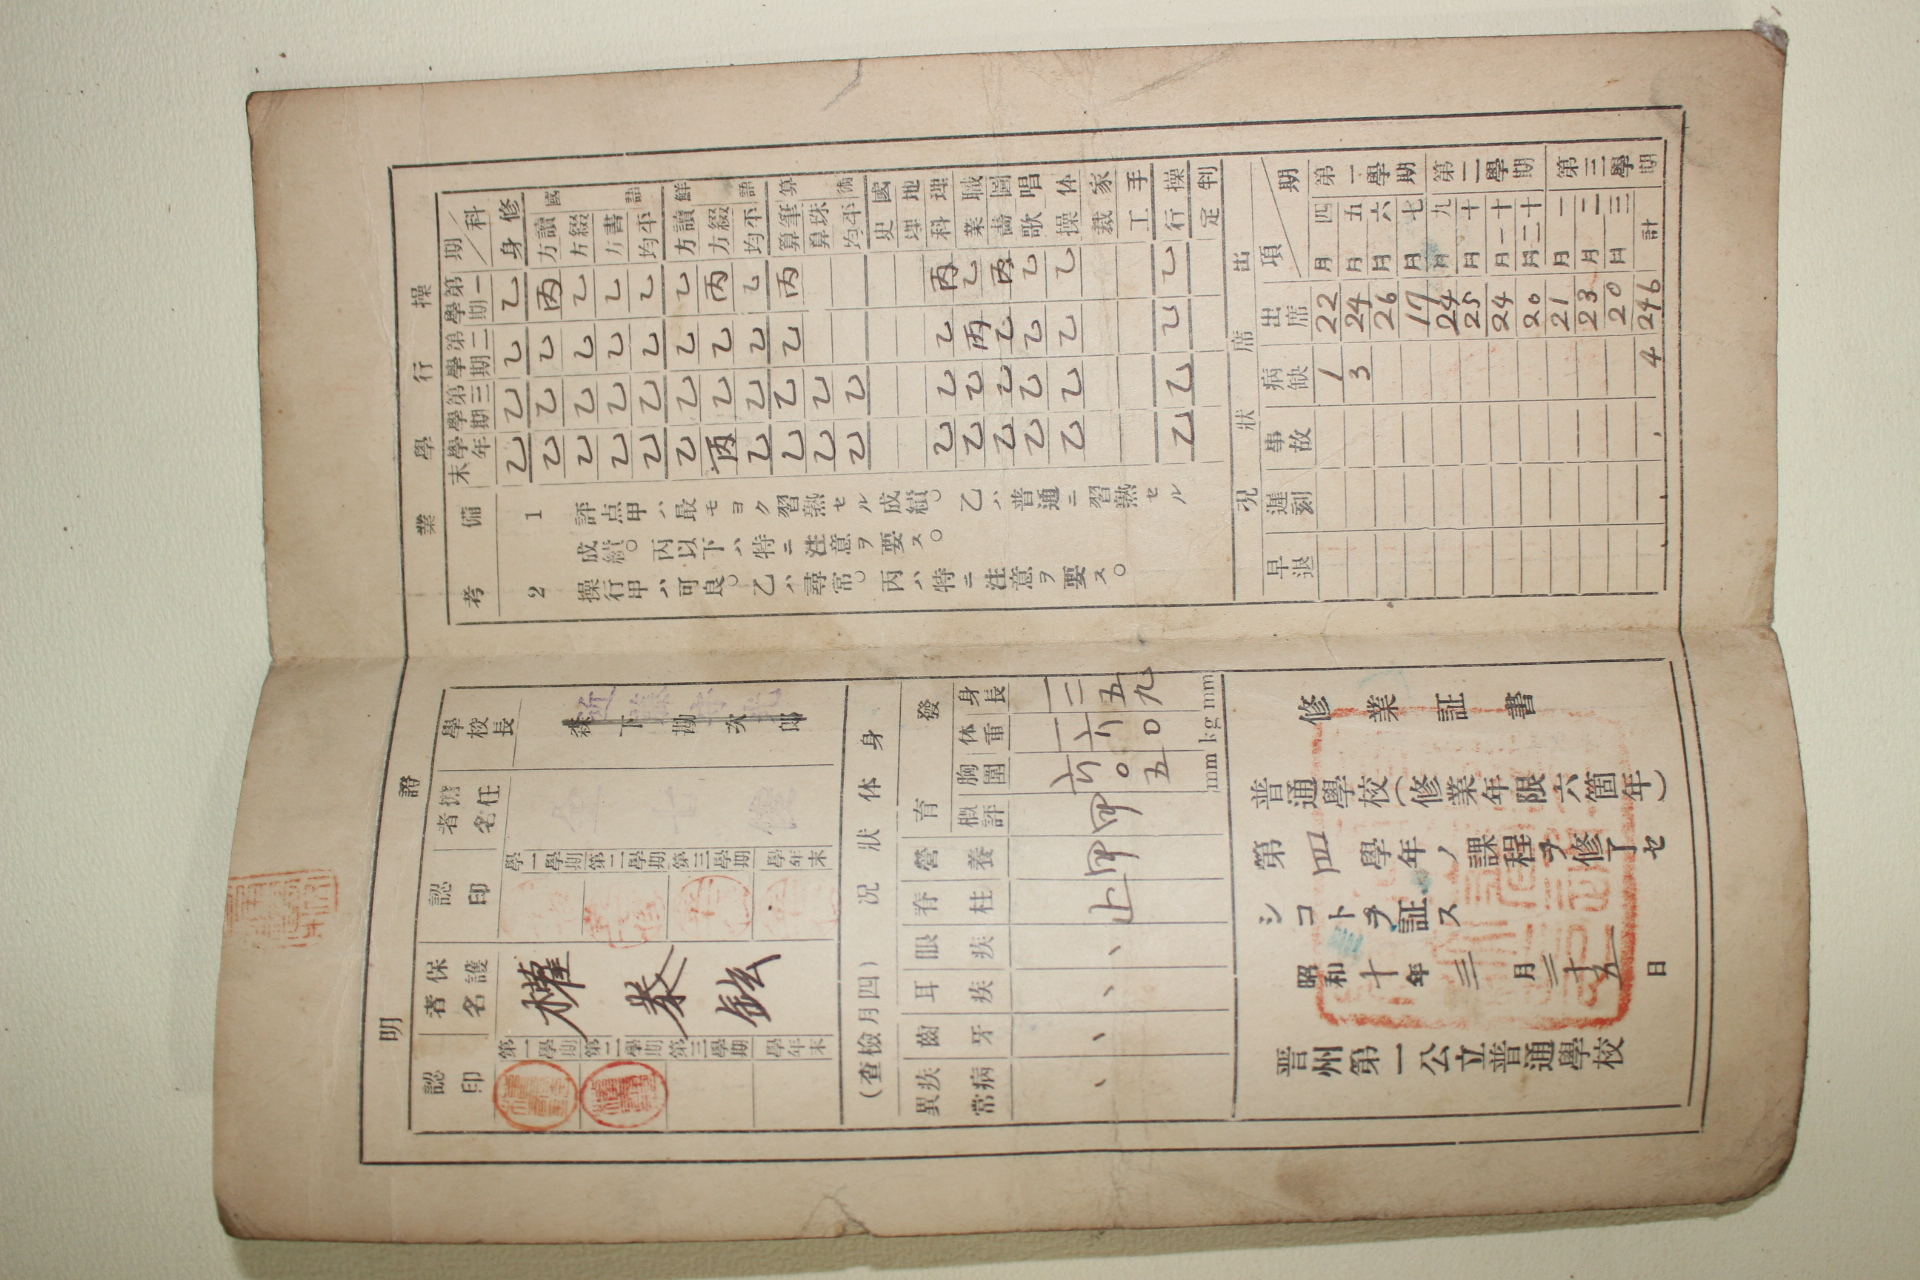 操行學業
科／期
第一學期
第二學期
第三學期
學年末
備考
修身 乙 乙 乙 乙
國語
讀方 丙 乙 乙 乙
綴方 乙 乙 乙 乙
書方 乙 乙 乙 乙
平均 乙 乙 乙 乙
鮮語
讀方 乙 乙 乙 乙
綴方 丙 乙 乙 丙
平均 乙 乙 乙 乙
算術
筆算 丙 乙 乙 乙
珠算 乙 乙
平均 乙 乙
國史
地理
理科 丙 乙 乙 乙
職業 乙 丙 乙 乙
圖畵 丙 乙 乙 乙
唱歌 乙 乙 乙 乙
体操 乙 乙 乙 乙
家裁
手工
操行 乙 乙 乙 乙
判定
1 評点甲ハ最モヨク習熟セル成績。乙ハ普通ニ習熟セル
成績。丙以下ハ特ニ注意ヲ要ス。
2 操行甲ハ可良。乙ハ尋常。丙ハ特ニ注意ヲ要ス。
出席狀况
期／項
出席
病缺
事故
遲刻
早退
第一學期
四月 22 1
五月 24 3
六月 26
七月 17
第二學期
九月 24
十月 25
十一月 24
十二月 20
第三學期
一月 21
二月 23
三月 20
計 246 4
證明
學校長
森下勘次郎
近藤
擔任者名
認印
第一學期
第二學期
第三學期
學年末
保護者名
權泰鉉
認印
第一學期
第二學期
第三學期
學年末
身体狀况（四月檢查）
發育
身長 一二五九 mm
体重 一六六〇 kg
胸圍 六〇五 mm
概評 甲
營養 甲
脊柱 正
眼疾 、
耳疾 、
齒牙 、
疾病異常 、
修業証書
普通學校（修業年限六箇年）
第四學年ノ課程ヲ修了セ
シコトヲ証ス
昭和十年三月二十五日
晋州第一公立普通學校